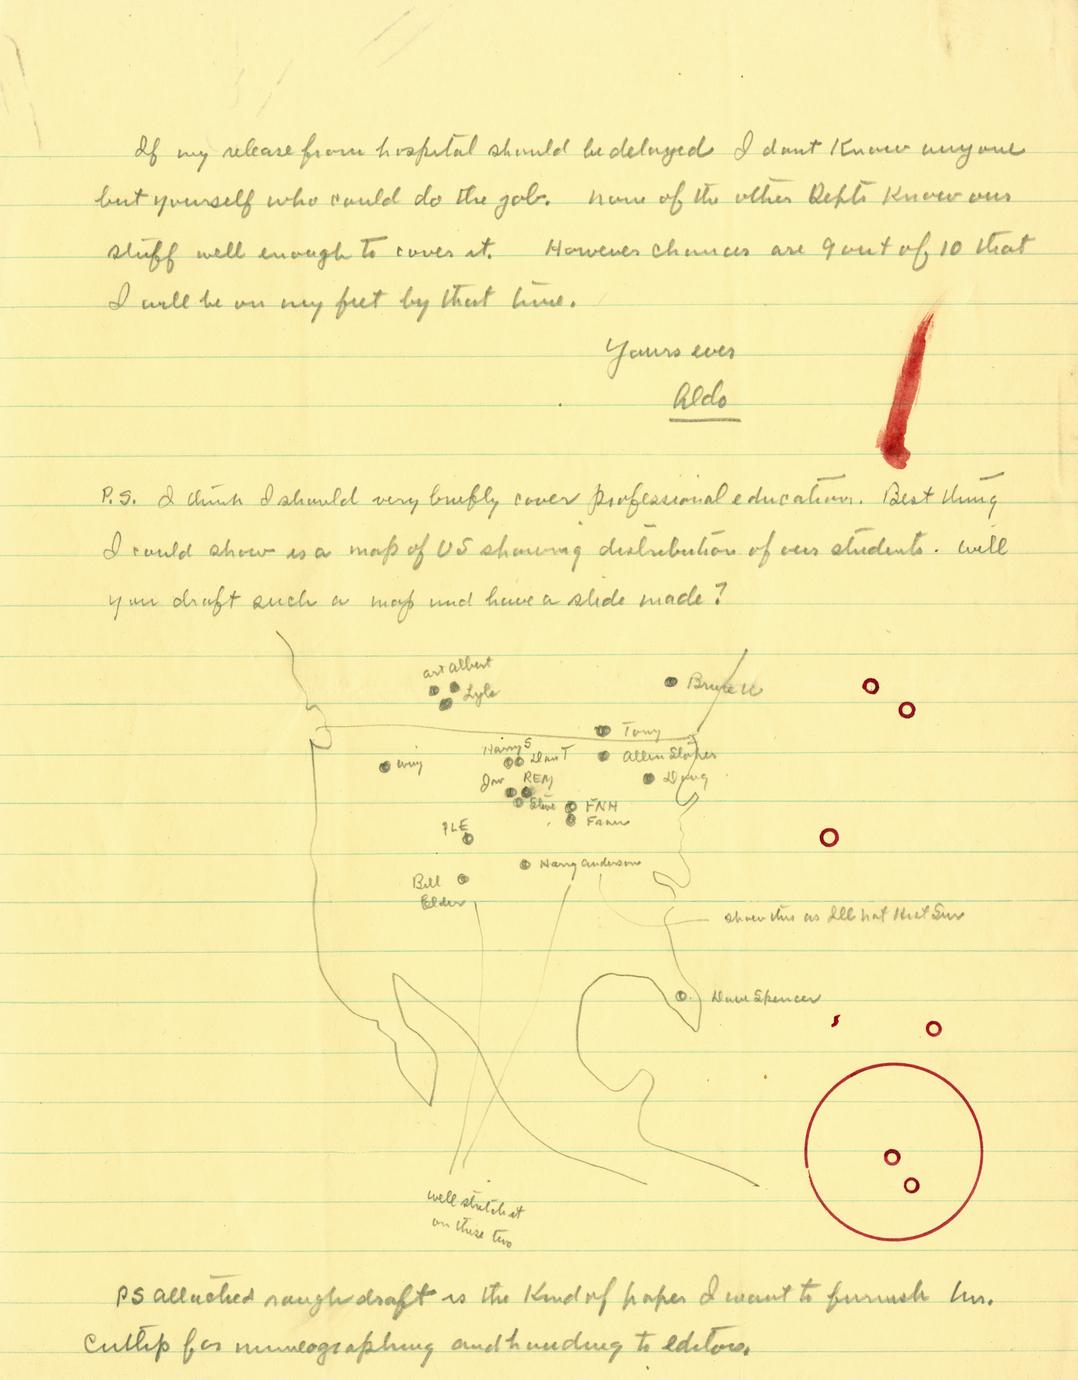 If my release from hospital should be delayed I dont Know anyone
but yourself who could do the job. None of the other Depts Know our
stuff well enough to cover it. However chances are 9 out of 10 that
I will be on my feet by that time.
Yours ever
Aldo
P.S. I think I should very briefly cover professional education. Best thing
I could show is a map of US showing distribution of our students. Will
you draft such a map and have a slide made?
Art Albert
Lyle
Bruce
Tony
Harry S
Dan T
Allen Slopes
Irv
Doug
Joe REM
Steve
FNH
Fran
PLE
Harry Anderson
Bill
Elder
show this as Ill Nat Hist Sur
Dave Spencer
well stretch it
on these two
PS Attached rough draft is the Kind of paper I want to furnish Mr.
Cutlip for mimeographing and handing to editors.